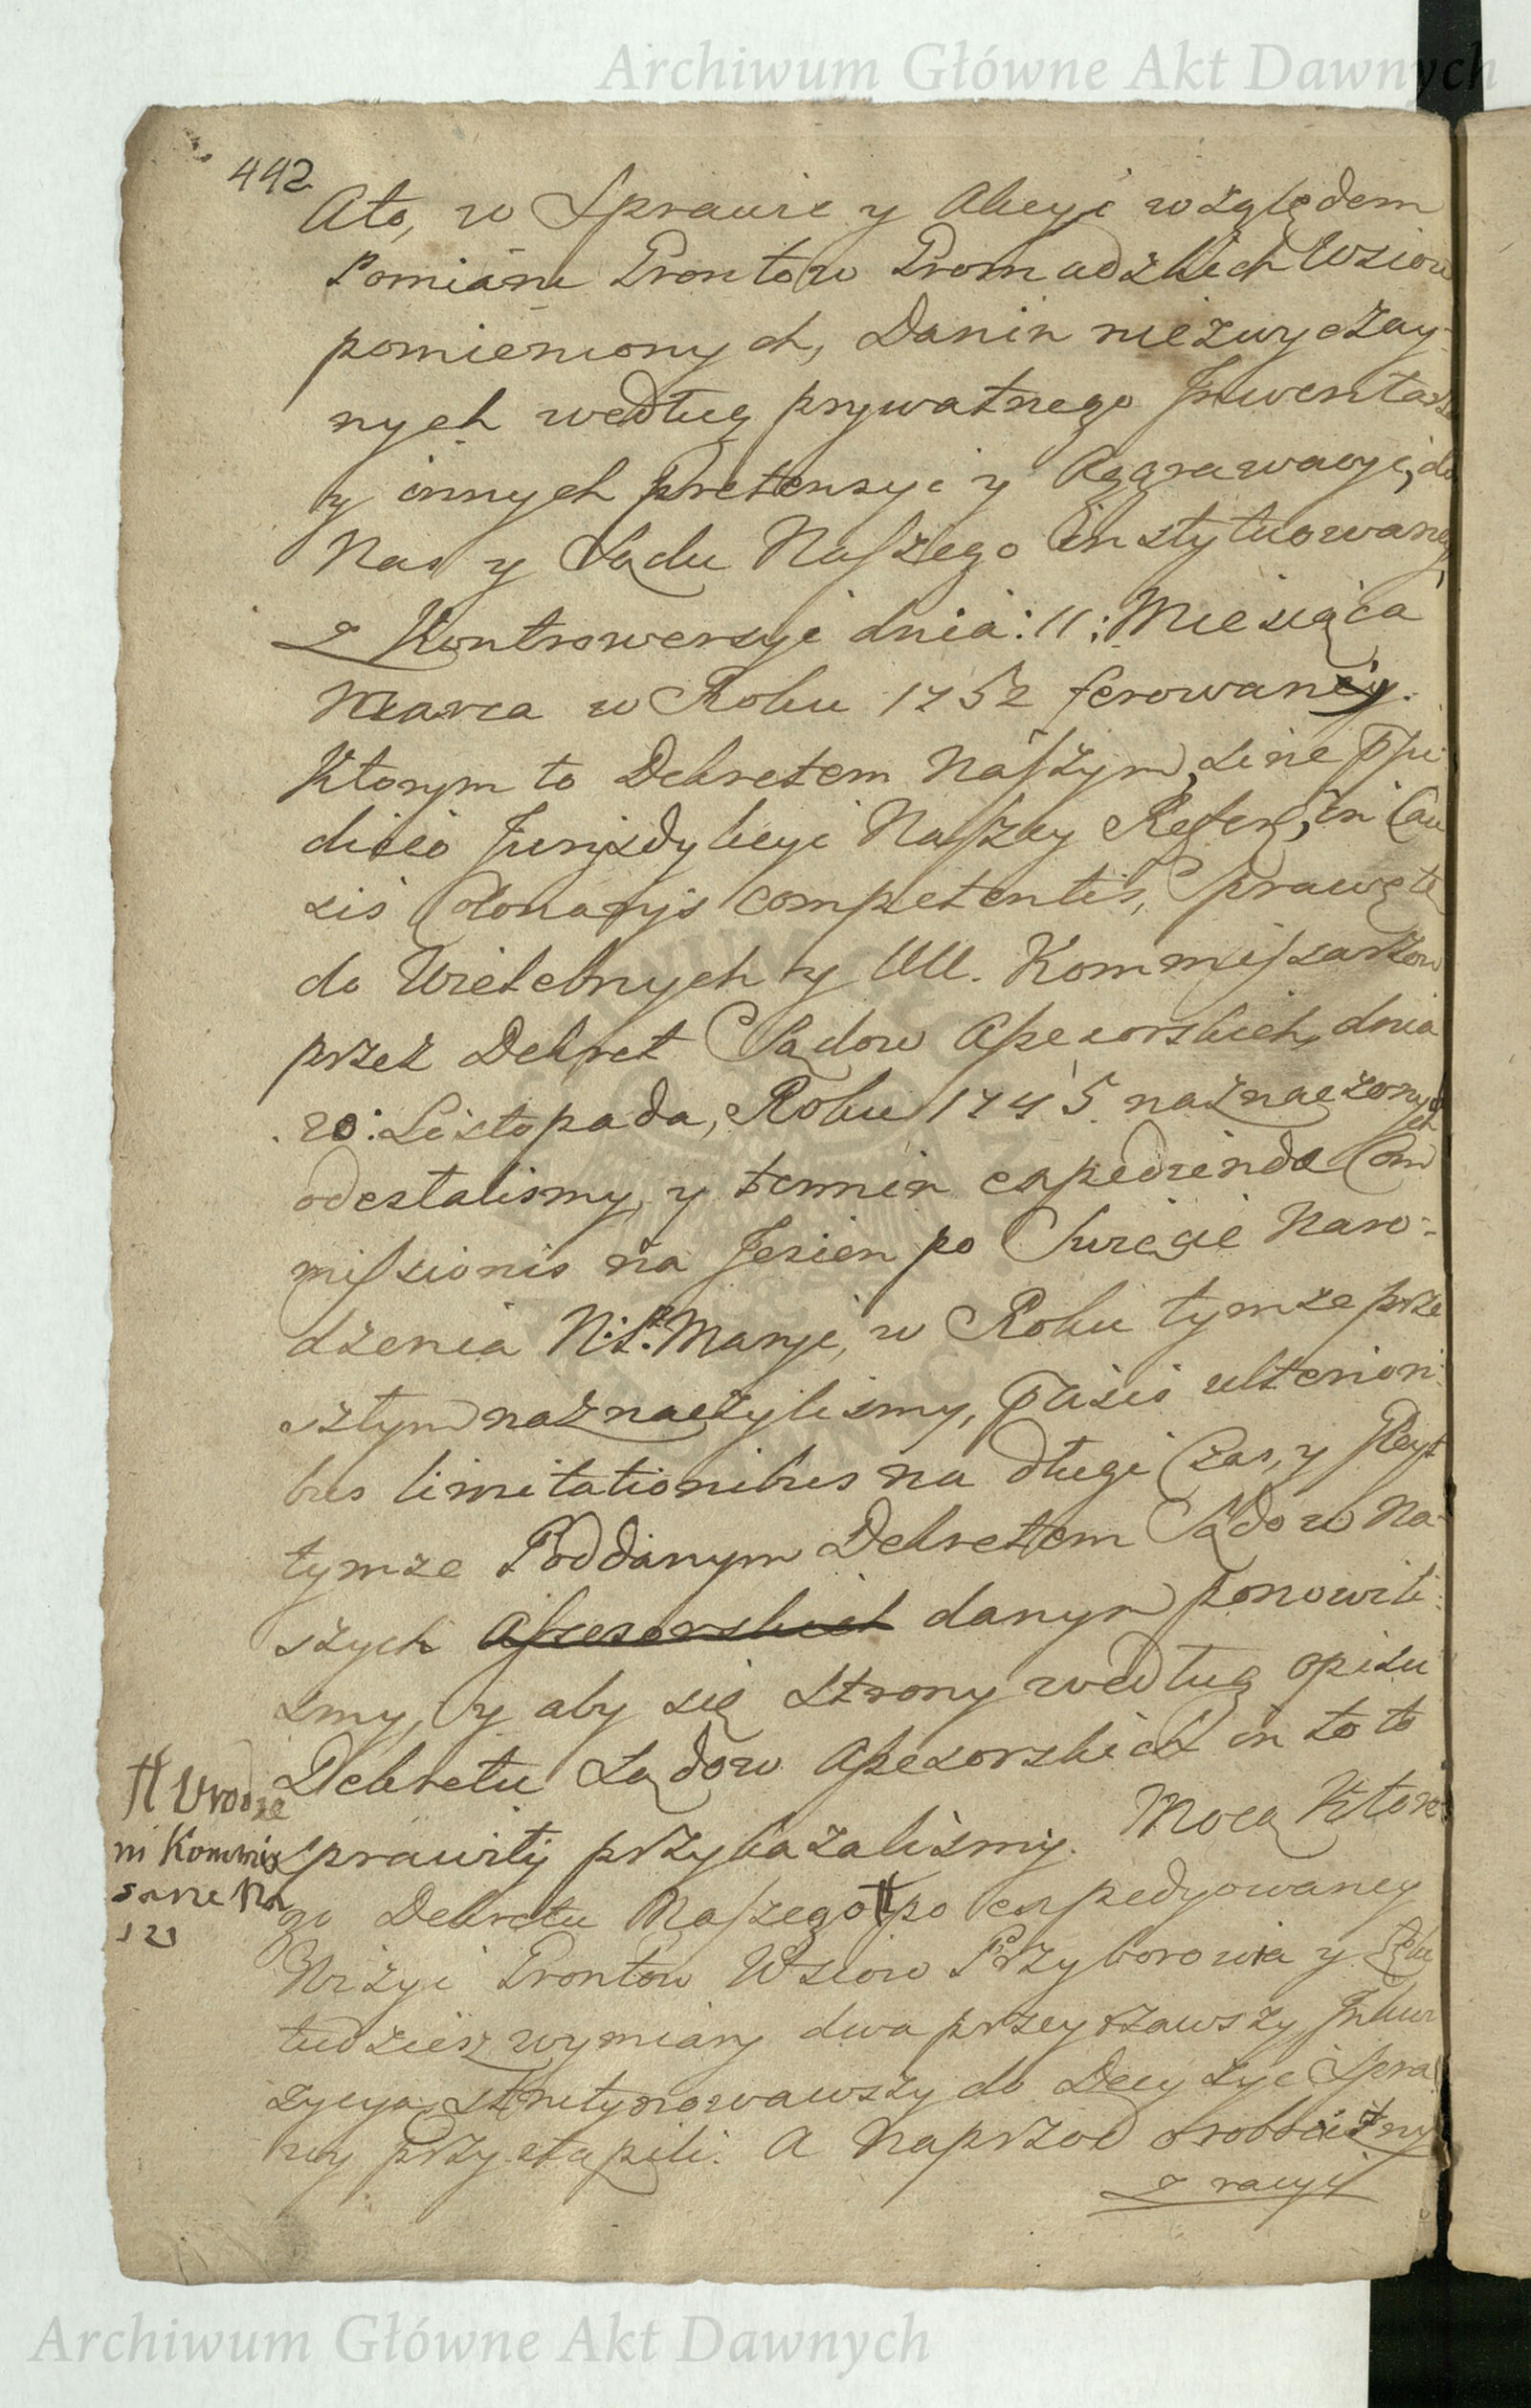 Archiwum Główne Akt Dawnych
442
Ato, w Sprawie y Akcyi względem
Pomiaru Grontow Gromadzkich Wsiow
pomienionych, Danin niezwyczay-
nych według prywatnego Inwentarza
y innych Pretensyi y Aggrawacyi, do
Nas y Sądu Naszego Instytuowaney,
z Kontrowersyi dnia: 11: Miesiąca
Marca w Roku 1752 ferowany.
Ktorym to Dekretem Naszym, sine Pju-
dicio Juryzdykcyi Naszey Refer, in Cau
sis Colonarys competentis, Sprawę tę
do Wielebnych y UU. Kommissarzow
przez Dekret Sądow Assesorskich, dnia
20: Listopada, Roku 1745. naznaczonych
odesłalismy, y termin expediendae Com
missionis na Jesien po Swięcie Naro-
dzenia N: P. Maryi, w Roku tymże prze
szłym naznaczylismy, Pcisis ulteriori
bus limitationibus na długi Czas, y Gleyt
tymże Poddanym Dekretem Sądow Na-
szych Assesorskich danym ponowili
smy, y aby się strony według opisu
Dekretu Sądow Assesorskich in toto
sprawiły przykazalismy. Mocą Ktore
go Dekretu Naszego # po expedyowaney
Wizyi Grontow Wsiow Przyborowia y
tudziesz wymiary dwa przeyrzawszy Inkwi
zycyą skrutynowawszy do Decyzyi Spra
wy przystąpili. A Naprzod o robocizny
z racyi
# Urodze
ni Kommis
sarze Na
si
Archiwum Główne Akt Dawnych